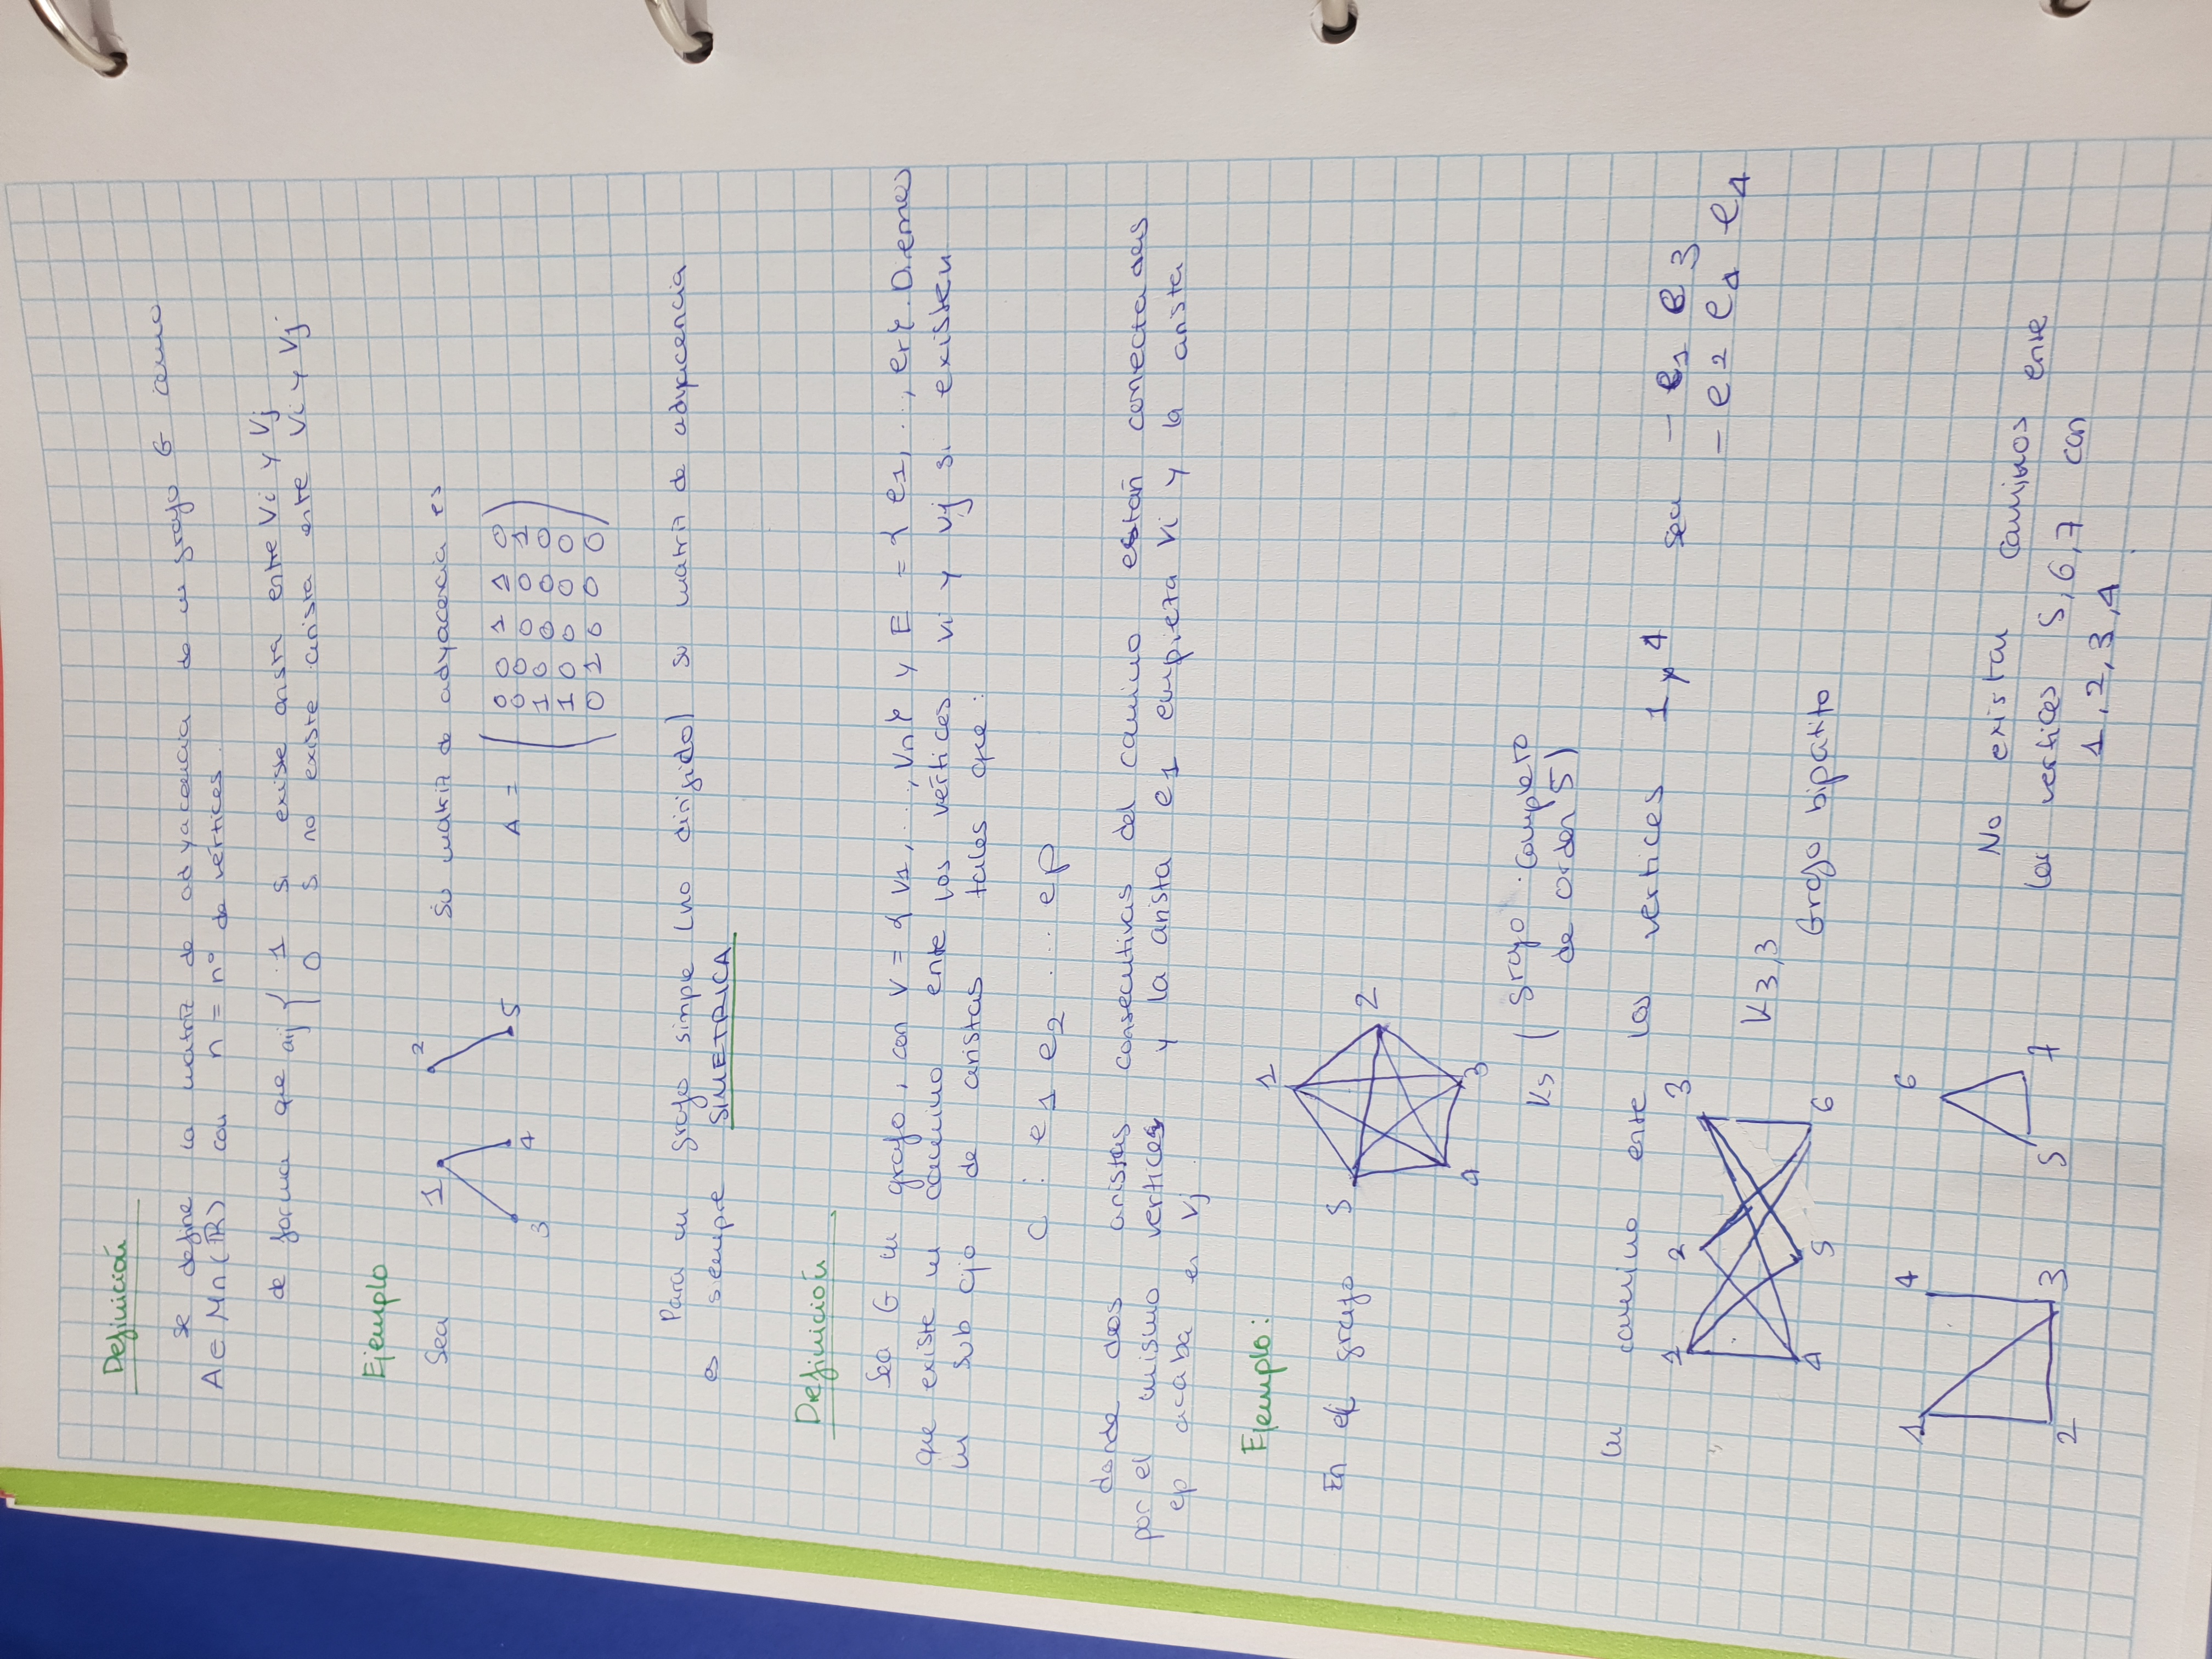 Definición
se define la matriz de adyacencia de un grafo G como
A ∈ Mn (ℝ) con n = nº de vértices.
de forma que aij { 1 si existe arista entre Vi y Vj
0 si no existe arista entre Vi y Vj
Ejemplo
Sea
1 2
3 4 5
Su matriz de adyacencia es
A = ( 0 0 1 1 0
0 0 0 0 1
1 0 0 0 0
1 0 0 0 0
0 1 0 0 0 )
Para un grafo simple (no dirigido) su matriz de adyacencia
es siempre SIMETRICA
Definición
Sea G un grafo, con V = { V1, ..., Vn } y E = { e1, ..., er }. Diremos
que existe un camino entre los vértices Vi y Vj si existen
un subcjo de aristas tales que:
C : e1 e2 ... ep
donde dos aristas consecutivas del camino están conectadas
por el mismo vertices y la arista e1 empieza Vi y la arista
ep acaba en Vj
Ejemplo:
En el grafo
1
5 2
4 3
K5 ( grafo completo
de orden 5)
Un camino entre los vertices 1 y 4 sea - e1 e3
- e2 e4 e4
1 2 3
4 5 6
K3,3
Grafo bipatito
1 4 6
2 3 5 7
No existen caminos entre
los vertices 5,6,7 con
1,2,3,4